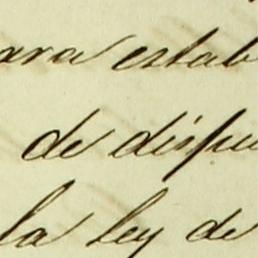 ara estab
de dispu
la ley de